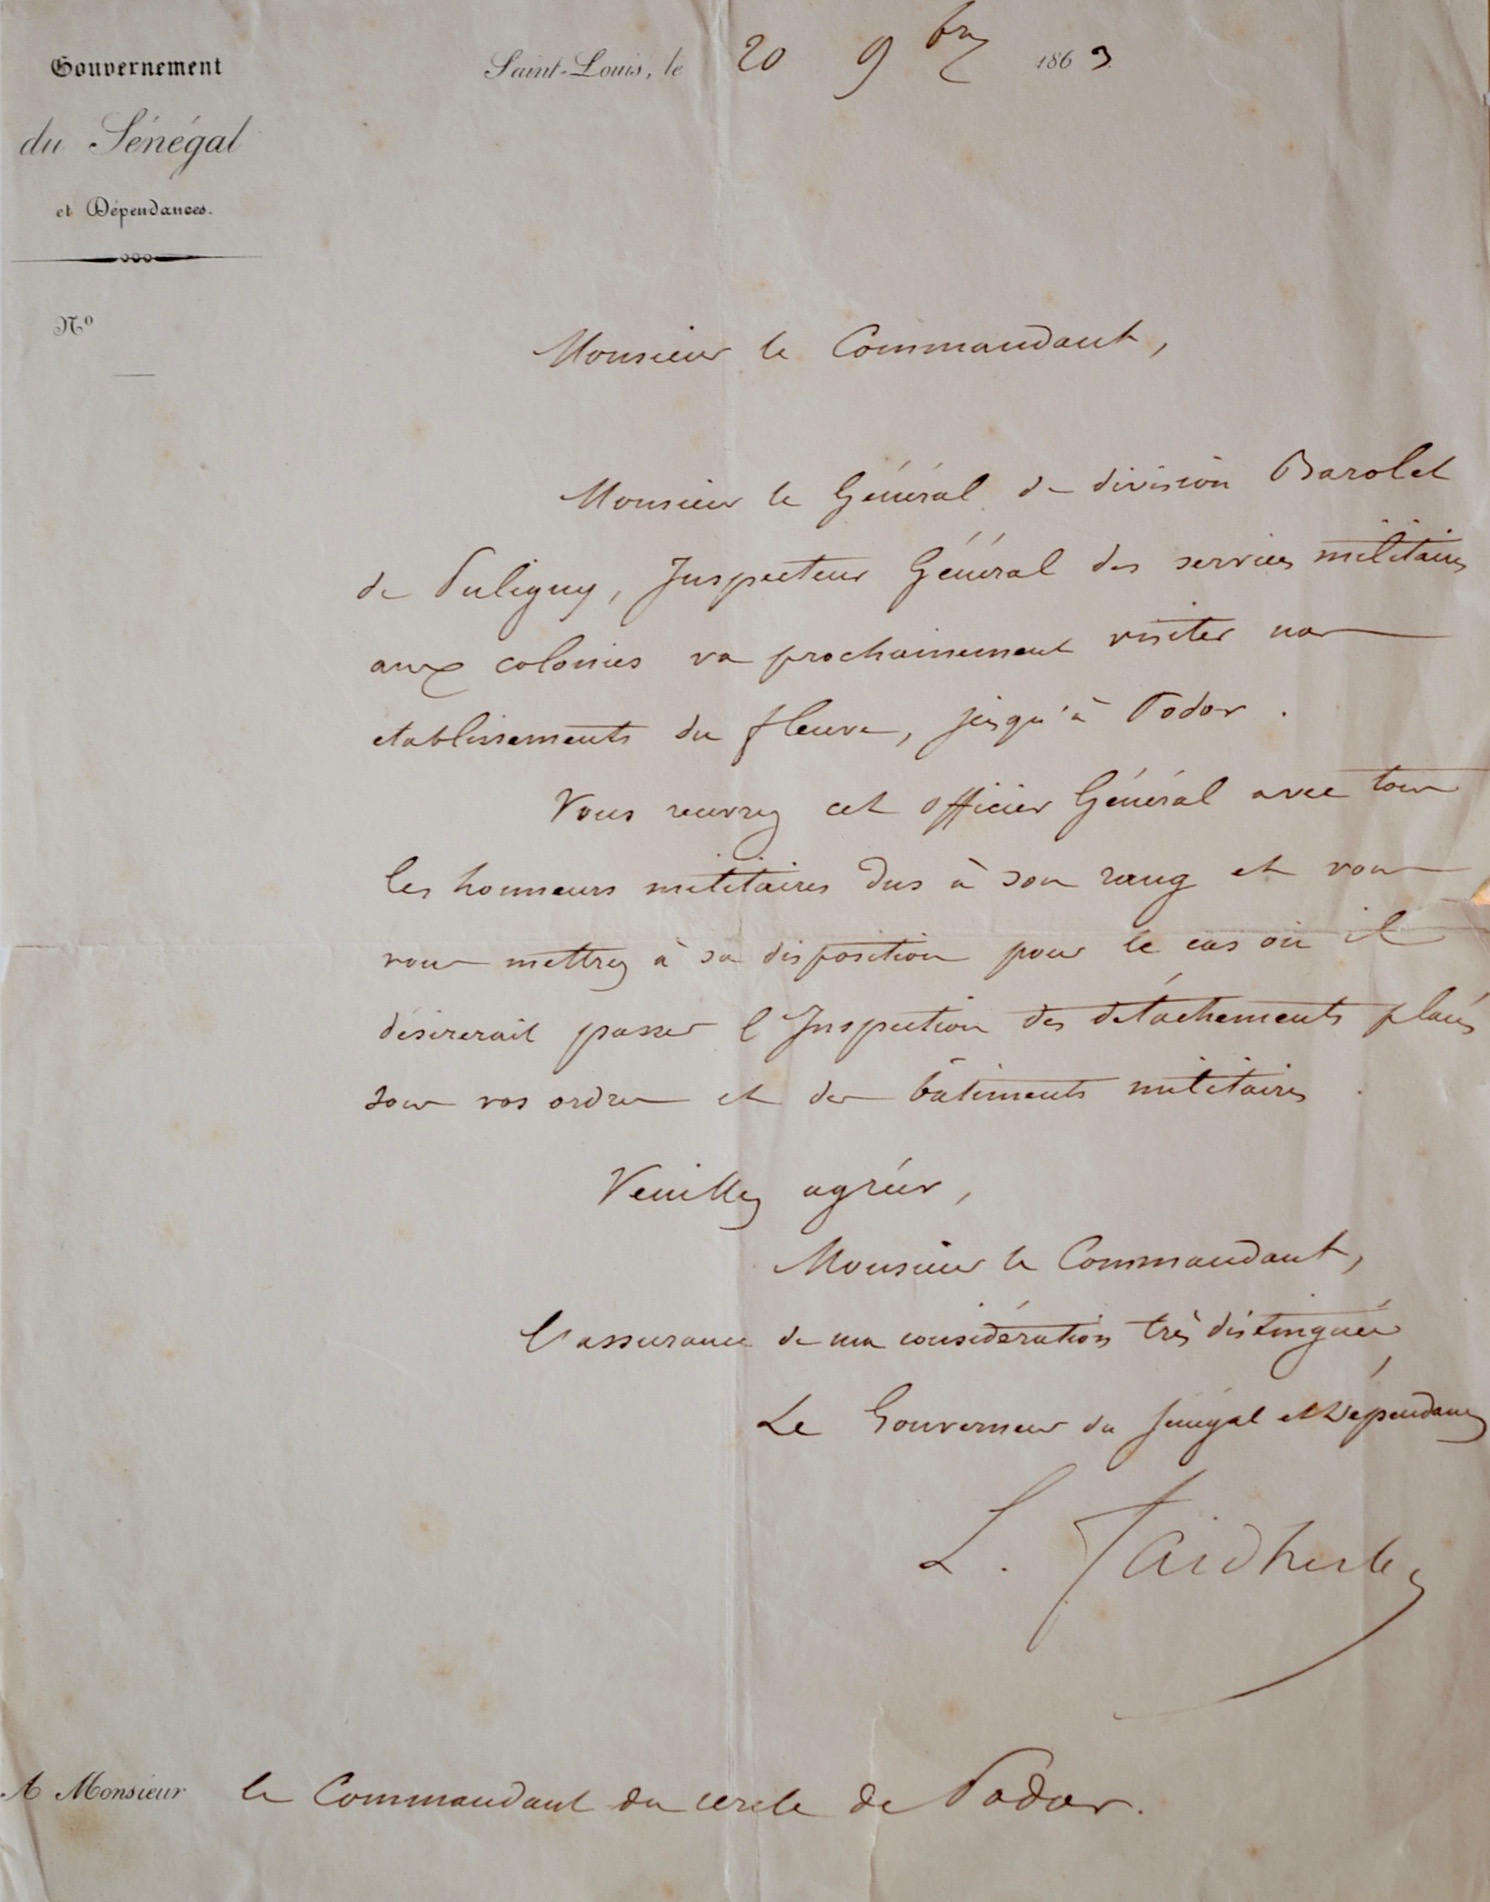 Gouvernement
du Sénégal
et Dépendances.
Nº
Saint-Louis, le 20 9bre 1863.
Monsieur le Commandant,
Monsieur le Général de division Barolet
de Puligny, Inspecteur Général des services militaires
aux colonies va prochainement visiter nos
etablissements du fleuve, jusqu'à Podor.
Vous recevrez cet officier Général avec tous
les honneurs militaires dus à son rang et vous
vous mettrez à sa disposition pour le cas où il
désirerait passer l'Inspection des détachements placés
sous vos ordres et des bâtiments militaires.
Veuillez agréer,
Monsieur le Commandant,
l'assurance de ma considération très distinguée,
Le Gouverneur du Sénégal et Dépendances
L. Faidherbe
A Monsieur le Commandant du cercle de Podor.